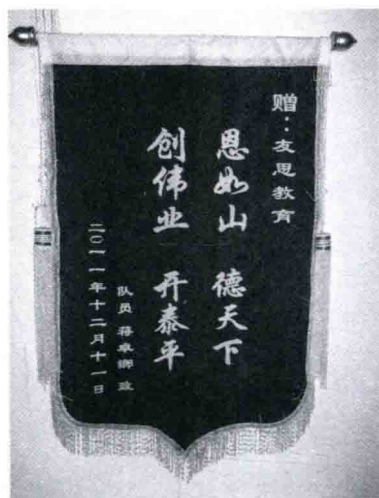 赠:友思教育
恩如山 德天下
创伟业 开泰平
队员 蒋卓卿 敬
二〇一一年十二月十一日